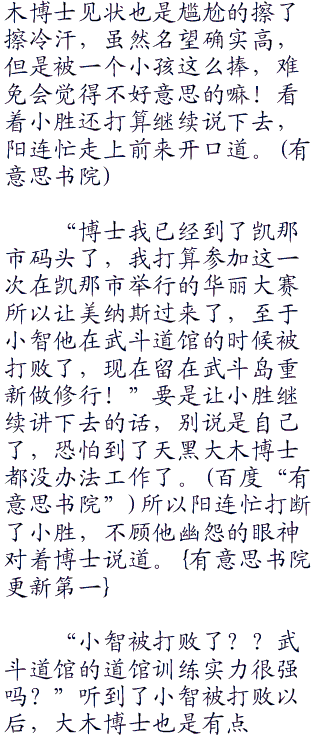 木博士见状也是尴尬的擦了
擦冷汗，虽然名望确实高，
但是被一个小孩这么捧，难
免会觉得不好意思的嘛！看
着小胜还打算继续说下去，
阳连忙走上前来开口道。(有
意思书院)
“博士我已经到了凯那
市码头了，我打算参加这一
次在凯那市举行的华丽大赛
所以让美纳斯过来了，至于
小智他在武斗道馆的时候被
打败了，现在留在武斗岛重
新做修行！”要是让小胜继
续讲下去的话，别说是自己
了，恐怕到了天黑大木博士
都没办法工作了。(百度“有
意思书院”)所以阳连忙打断
了小胜，不顾他幽怨的眼神
对着博士说道。{有意思书院
更新第一}
“小智被打败了？？武
斗道馆的道馆训练实力很强
吗？”听到了小智被打败以
后，大木博士也是有点